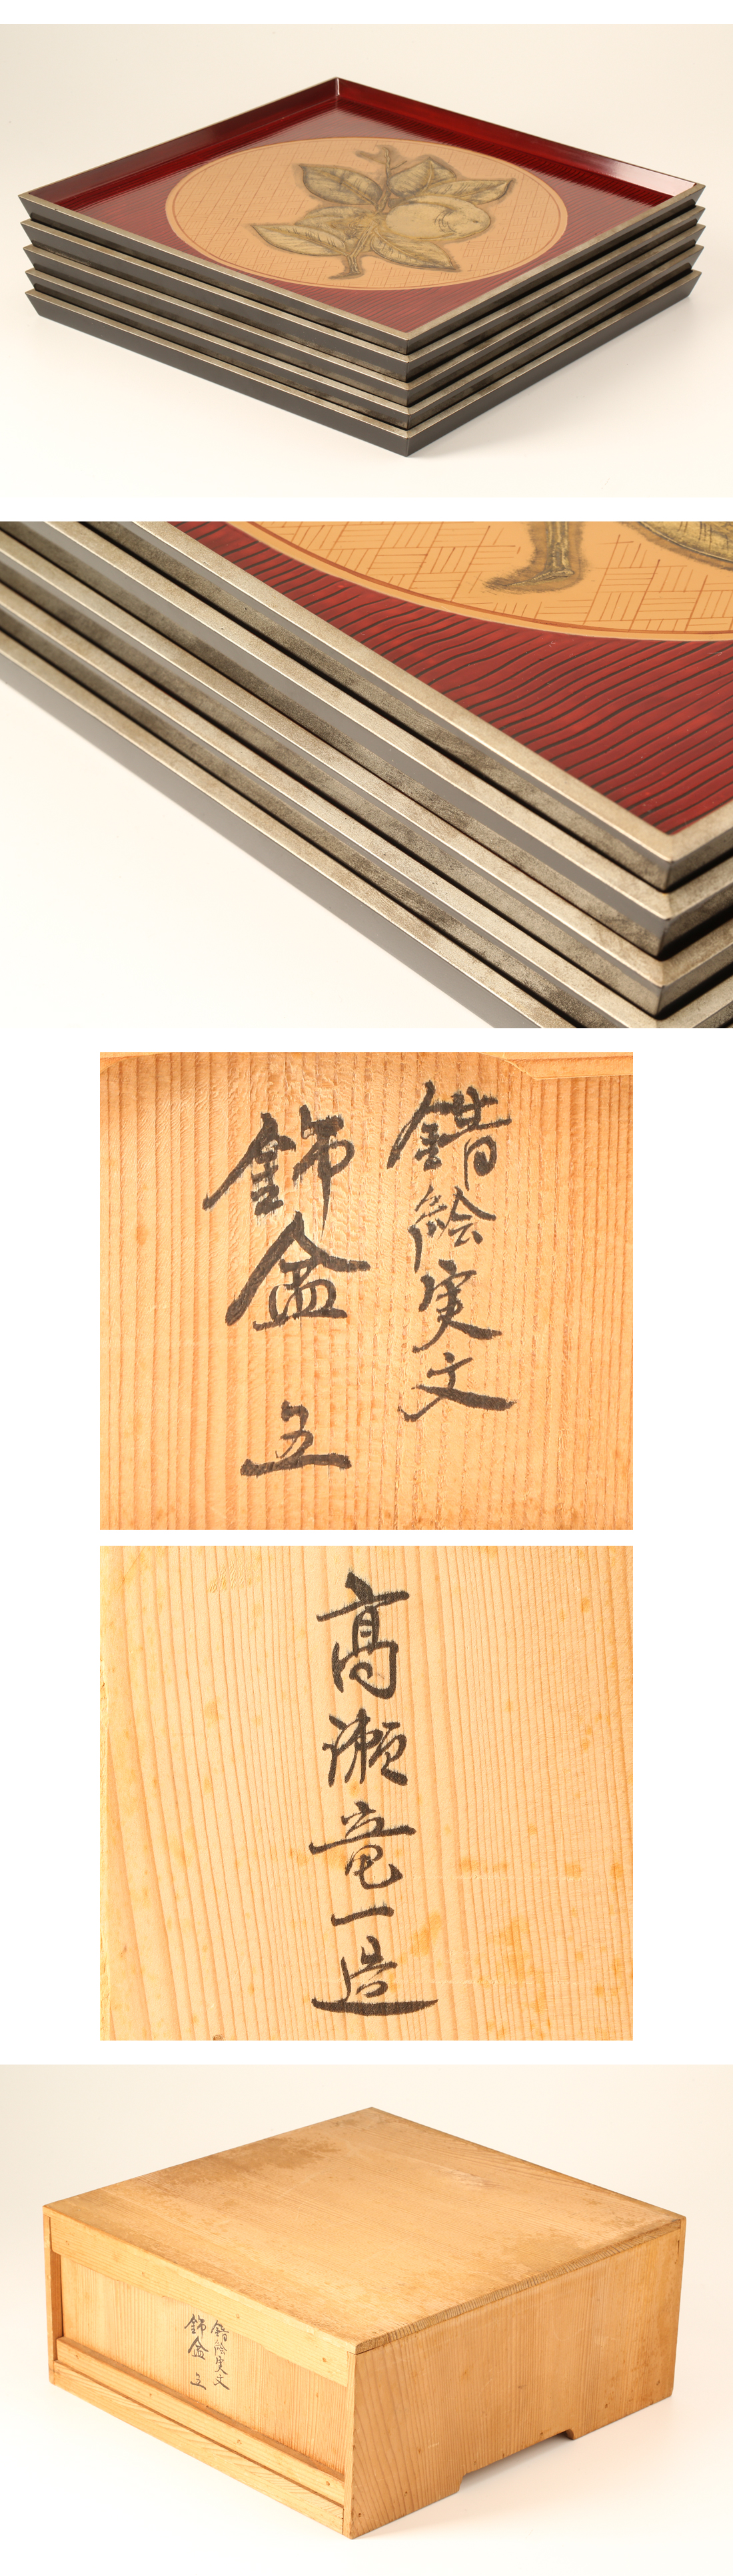 錆絵実文
飾盆 五
高瀬竜一造
錆絵実文
飾盆 五